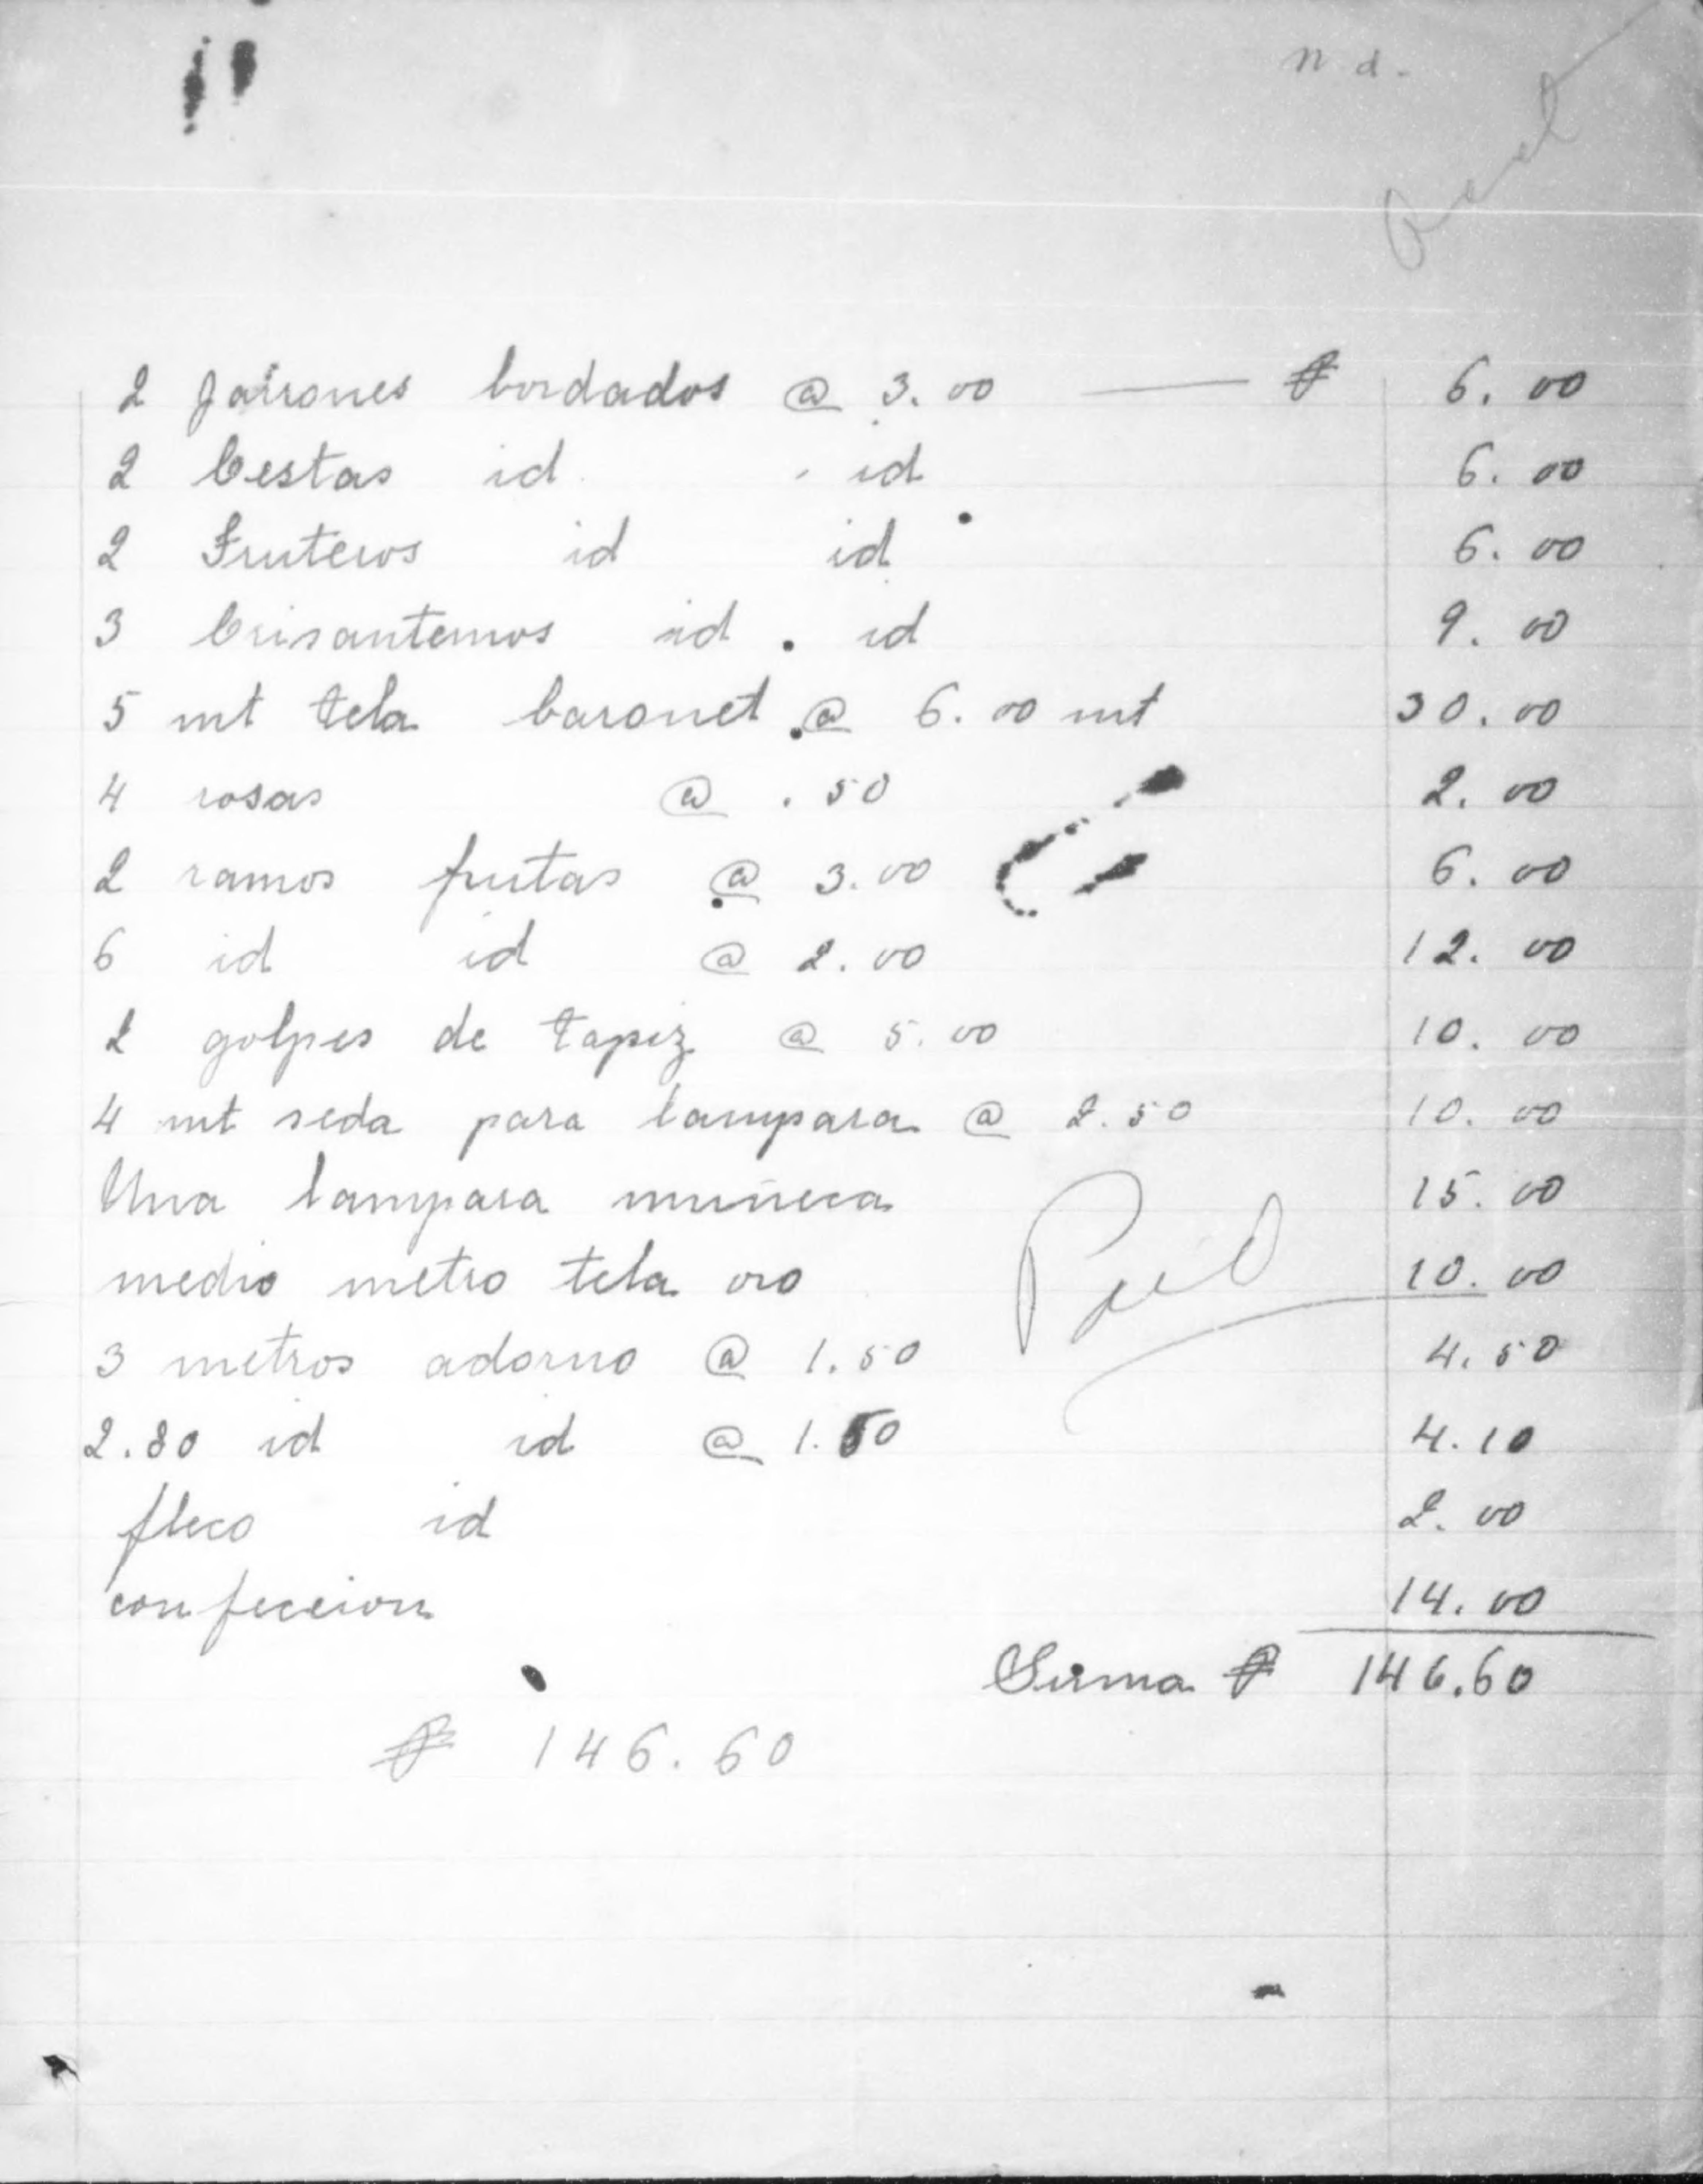 n d.
2 Jarrones bordados @ 3.00 — $ 6.00
2 Cestas id id 6.00
2 Fruteros id id 6.00
3 Crisantemos id. id 9.00
5 mt tela baronet @ 6.00 mt 30.00
4 rosas @ .50 2.00
2 ramos frutas @ 3.00 6.00
6 id id @ 2.00 12.00
2 golpes de tapiz @ 5.00 10.00
4 mt seda para lampara @ 2.50 10.00
Una lampara muñeca 15.00
Paid
medio metro tela oro 10.00
3 metros adorno @ 1.50 4.50
2.80 id id @ 1.50 4.10
fleco id 2.00
confeccion 14.00
Suma $ 146.60
$ 146.60